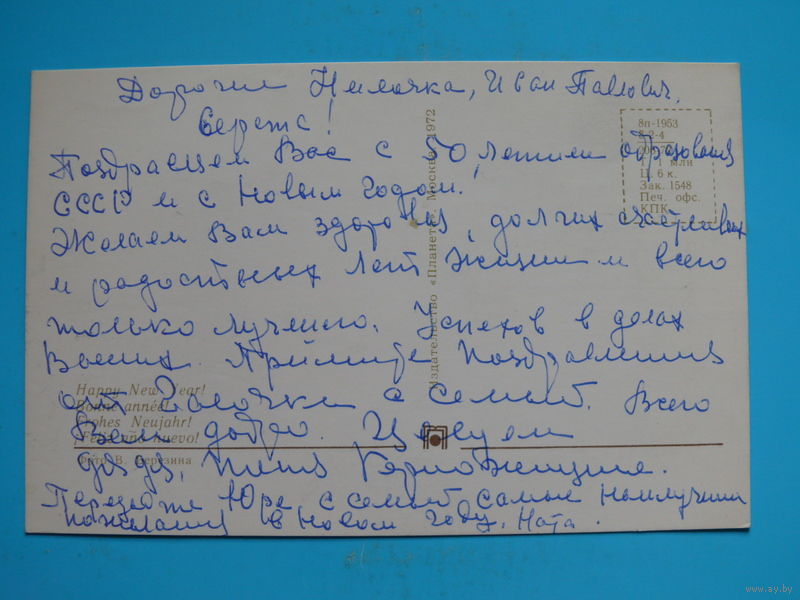 Дорогие Нилочка, Иван Павлович,
Сережа!
Поздравляем Вас с 50 летием образования
СССР и с Новым годом.
Желаем Вам здоровия, долгих счастливых
и радостных лет жизни и всего
только лучшего. Успехов в делах
Ваших. Примите поздравления
от Лёлочки с семьей. Всего
Вам добро. Целуем
дядя, тетя
Передайте Юре с семьей самые наилучшии
пожелания в Новом Году. Ната.
8п-1953
8-2-4
1 млн
Ц. 6 к.
Зак. 1548
Печ. офс.
КПК
Издательство «Планета» Москва 1972
Happy New Year!
Bonne année!
Frohes Neujahr!
¡Feliz año nuevo!
Фото В. Березина
www.ay.by